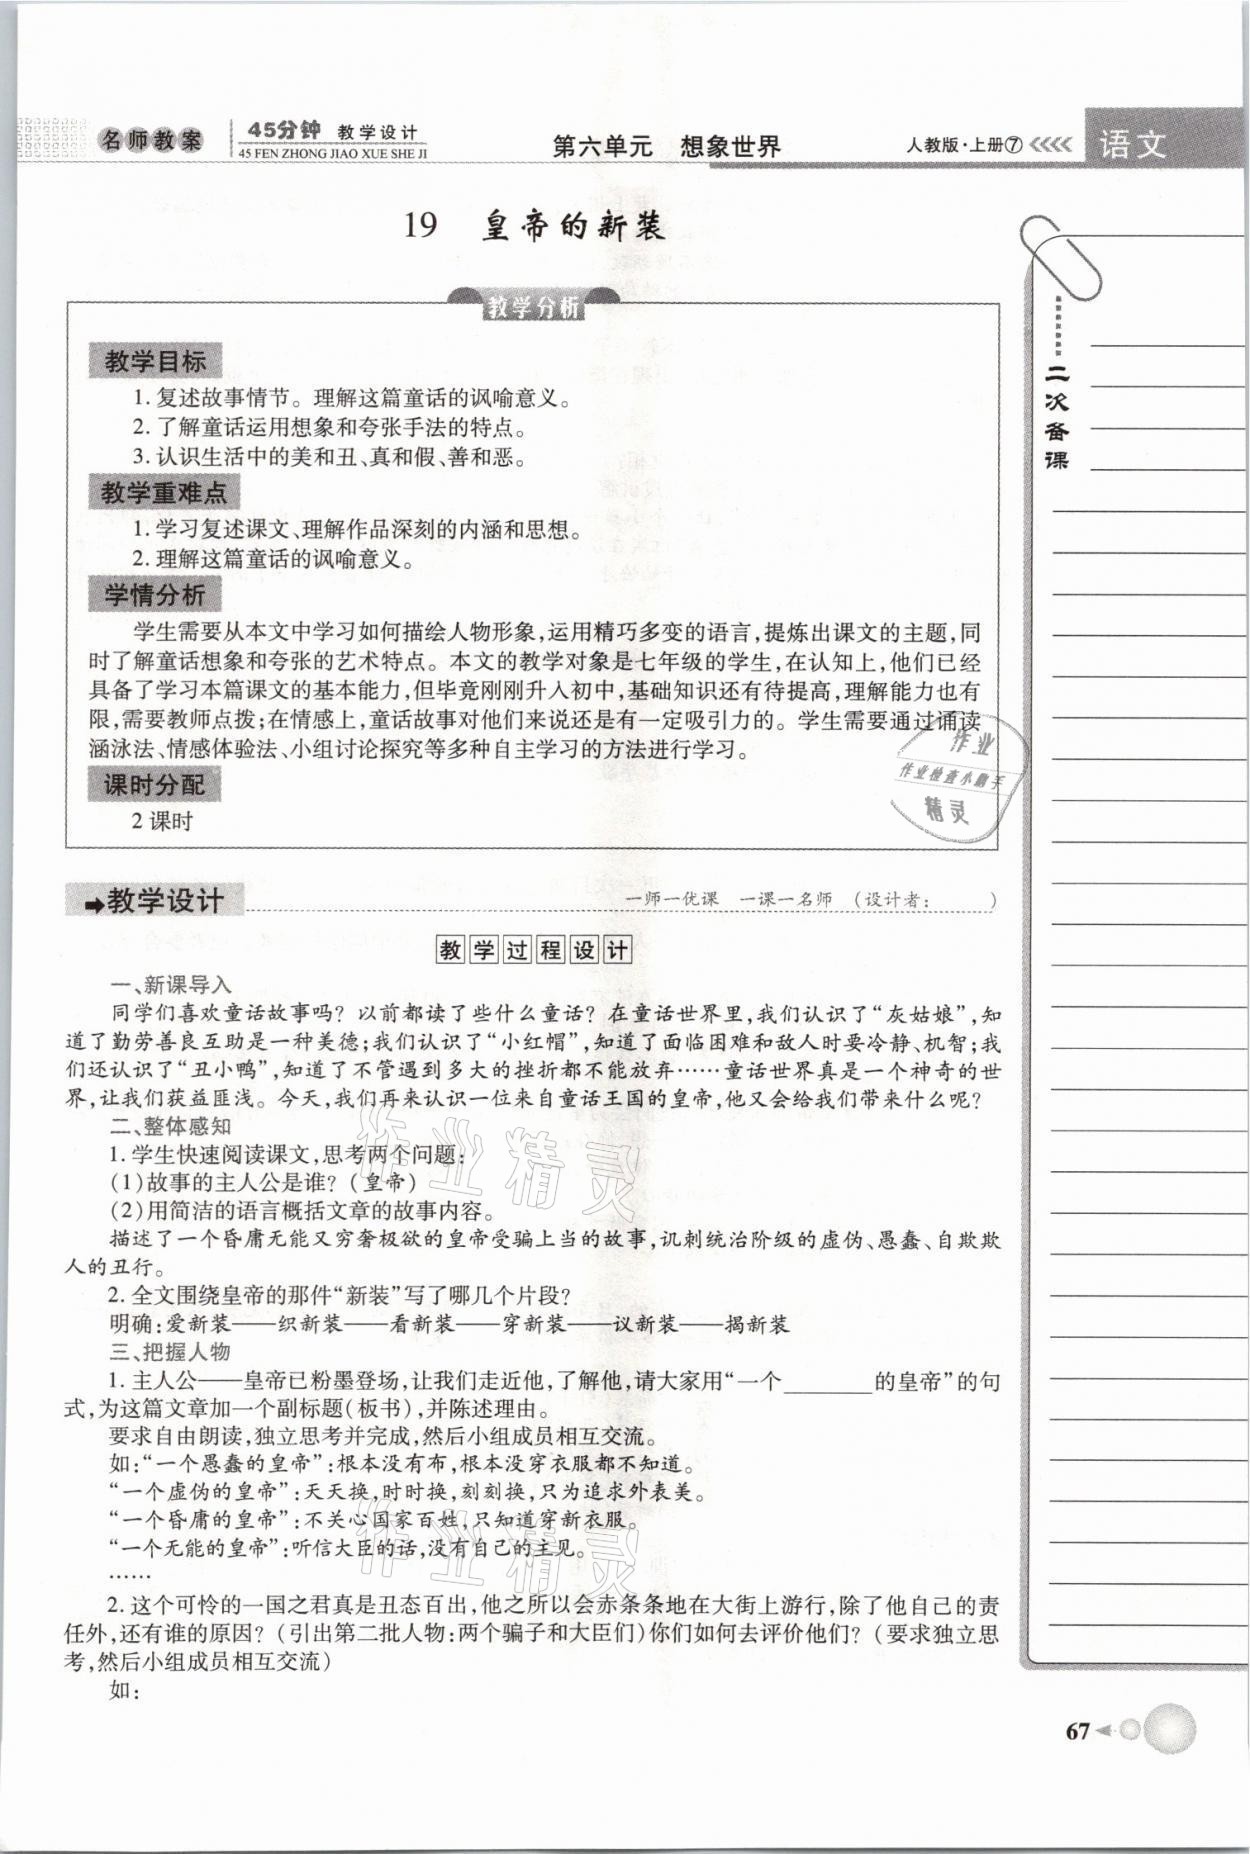 名师教案
45分钟 教学设计
45 FEN ZHONG JIAO XUE SHE JI
第六单元 想象世界
人教版·上册⑦
语文
19 皇帝的新装
教学分析
教学目标
1. 复述故事情节。理解这篇童话的讽喻意义。
2. 了解童话运用想象和夸张手法的特点。
3. 认识生活中的美和丑、真和假、善和恶。
教学重难点
1. 学习复述课文、理解作品深刻的内涵和思想。
2. 理解这篇童话的讽喻意义。
学情分析
学生需要从本文中学习如何描绘人物形象,运用精巧多变的语言,提炼出课文的主题,同
时了解童话想象和夸张的艺术特点。本文的教学对象是七年级的学生,在认知上,他们已经
具备了学习本篇课文的基本能力,但毕竟刚刚升入初中,基础知识还有待提高,理解能力也有
限,需要教师点拨;在情感上,童话故事对他们来说还是有一定吸引力的。学生需要通过诵读
涵泳法、情感体验法、小组讨论探究等多种自主学习的方法进行学习。
课时分配
2 课时
作业
作业检查小助手
精灵
二次备课
教学设计
一师一优课 一课一名师 (设计者: )
教学过程设计
一、新课导入
同学们喜欢童话故事吗? 以前都读了些什么童话? 在童话世界里,我们认识了“灰姑娘”,知
道了勤劳善良互助是一种美德;我们认识了“小红帽”,知道了面临困难和敌人时要冷静、机智;我
们还认识了“丑小鸭”,知道了不管遇到多大的挫折都不能放弃……童话世界真是一个神奇的世
界,让我们获益匪浅。今天,我们再来认识一位来自童话王国的皇帝,他又会给我们带来什么呢?
二、整体感知
1. 学生快速阅读课文,思考两个问题:
(1)故事的主人公是谁? (皇帝)
(2)用简洁的语言概括文章的故事内容。
描述了一个昏庸无能又穷奢极欲的皇帝受骗上当的故事,讥刺统治阶级的虚伪、愚蠢、自欺欺
人的丑行。
2. 全文围绕皇帝的那件“新装”写了哪几个片段?
明确:爱新装——织新装——看新装——穿新装——议新装——揭新装
三、把握人物
1. 主人公——皇帝已粉墨登场,让我们走近他,了解他,请大家用“一个________的皇帝”的句
式,为这篇文章加一个副标题(板书),并陈述理由。
要求自由朗读,独立思考并完成,然后小组成员相互交流。
如:“一个愚蠢的皇帝”:根本没有布,根本没穿衣服都不知道。
“一个虚伪的皇帝”:天天换,时时换,刻刻换,只为追求外表美。
“一个昏庸的皇帝”:不关心国家百姓,只知道穿新衣服。
“一个无能的皇帝”:听信大臣的话,没有自己的主见。
……
2. 这个可怜的一国之君真是丑态百出,他之所以会赤条条地在大街上游行,除了他自己的责
任外,还有谁的原因? (引出第二批人物:两个骗子和大臣们)你们如何去评价他们? (要求独立思
考,然后小组成员相互交流)
如:
作业精灵
作业精灵
67